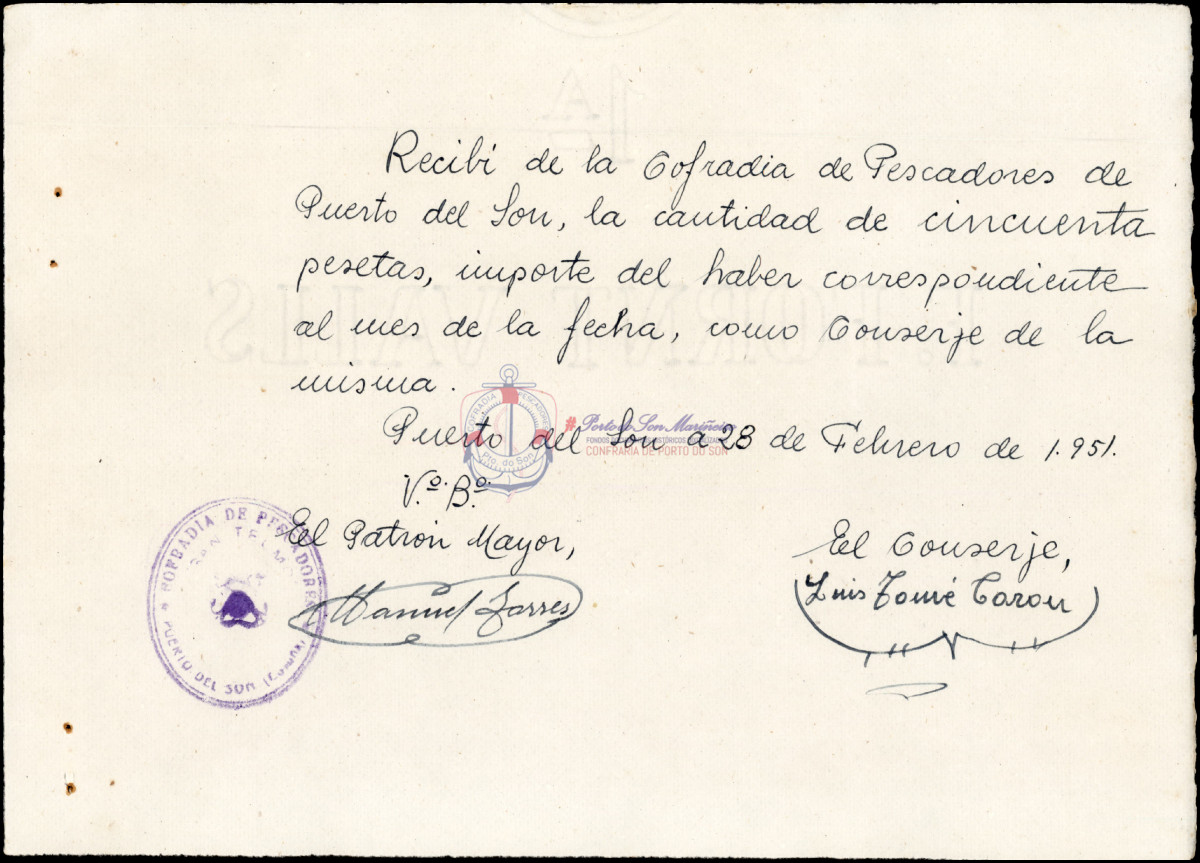 Recibí de la Cofradia de Pescadores de
Puerto del Son, la cantidad de cincuenta
pesetas, importe del haber correspondiente
al mes de la fecha, como Conserje de la
misma.
COFRADIA PESCADORES
Pto. do Son
#Porto do Son Mariñeiro
CONFRARIA DE PORTO DO SON
Puerto del Son a 28 de Febrero de 1.951.
V.º B.º
El Patrón Mayor,
El Conserje,
Manuel Torres
Luis Tomé
COFRADIA DE PESCADORES
SAN TELMO
PUERTO DEL SON (Coruña)
1A